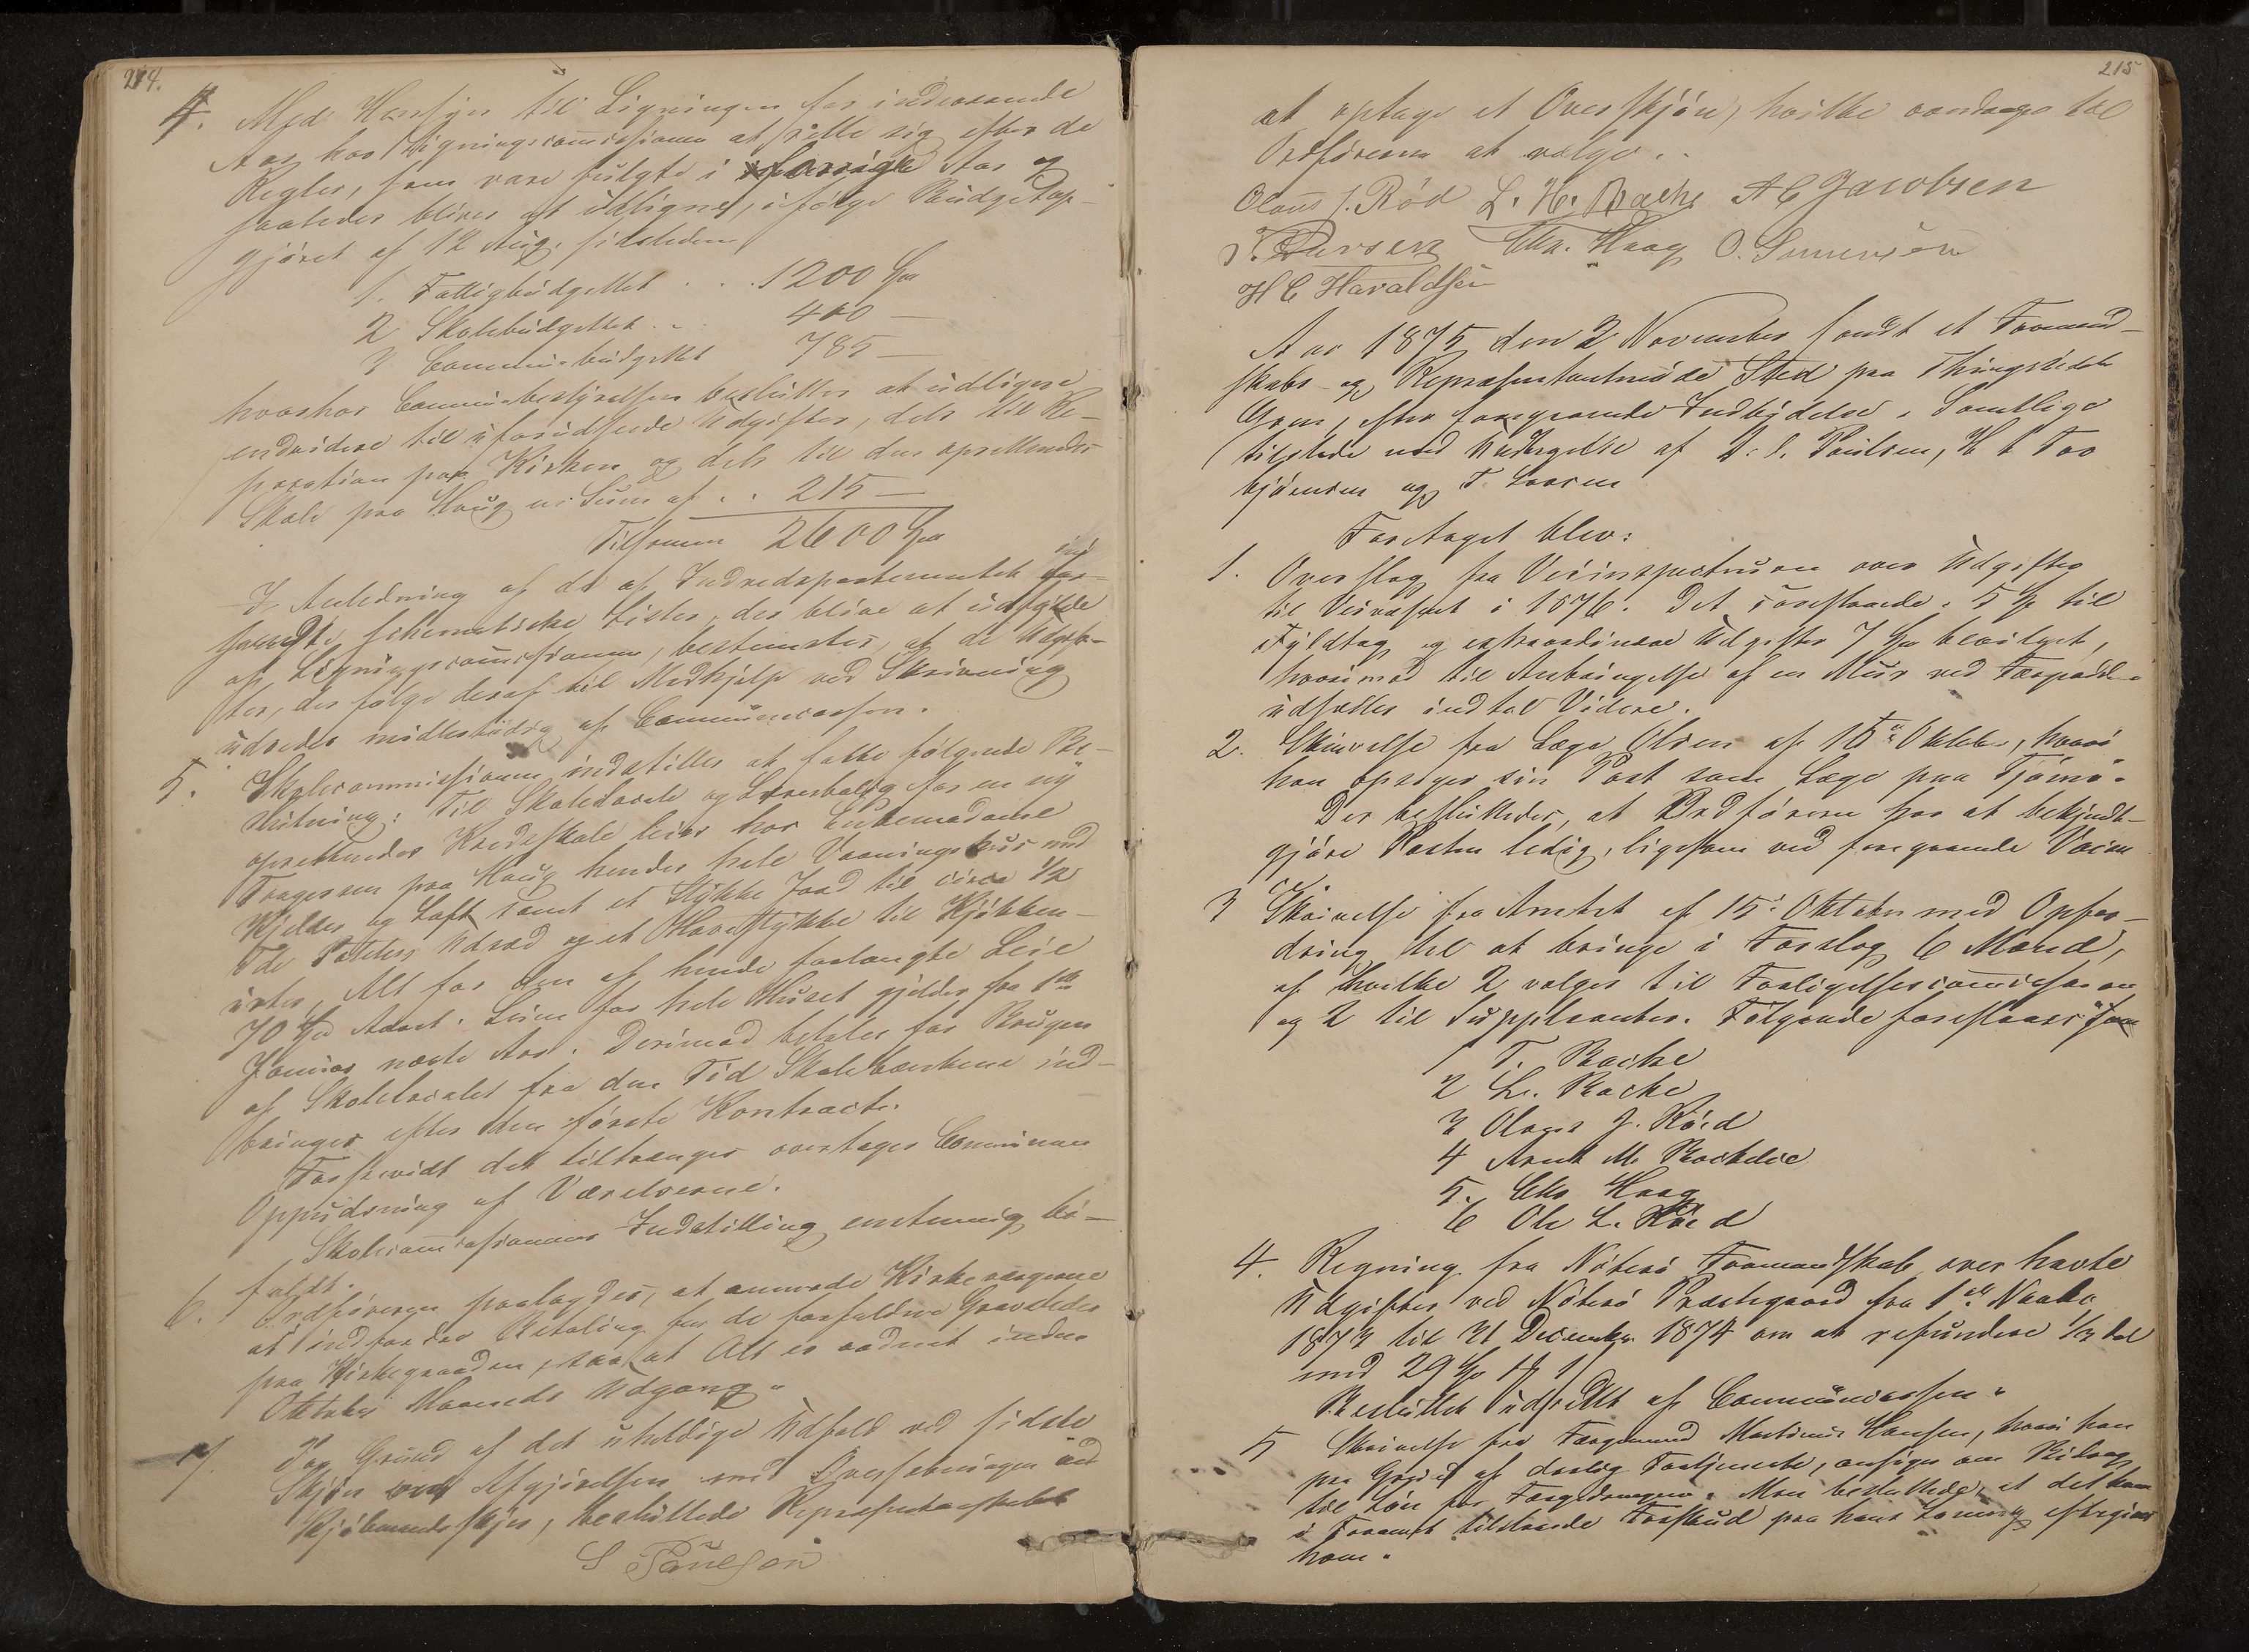 214.
4. Med Hensyn til Ligningen for indeværende
Aar har Ligningscommissionen at stille sig efter de
Regler, som vare fulgte i forrige Aar og
saaledes bliver at udligne, ifølge Budgetop-
gjøret af 12 Aug. sidstleden
1. Fattigbudgettet . . . 1200 Spd
2 Skolebudgettet . . 400 —
3 Commünebudgettet 785 —
hvorhos Communebestyrelsen beslutter at udligne
endvidere til uforudseede Udgifter, dels til Re-
peration paa Kirken og dels til den oprettendes
Skole paa Haug en Sum af . . 215 —
Tilsammen 2600 Spd
I Anledning af de af Indredepartementet ind
sendte schematiske Lister, der blive at udfylde
af Ligningscommissionen, bestemtes, at de Udgif-
ter, der følge deraf til Medhjelp ved Skrivning
udredes midlertidig af Communecassen.
5. Skolecommissionen indstiller at fatte følgende Be-
slutning: Til Skolelocale og Lærerbolig for en ny
oprettendes Kredsskole leies hos Enkemadame
Fagersen paa Haug hendes hele Vaaningshus med
Kjelder og Loft samt et Stykke Jord til circa 1/2
Tde Poteters Udsæd og et Havestykke til Kjøkken-
urter, Alt for den af hende forlangte Leie
70 Spd Aaret. Leien for hele Huset gjelder fra 1ste
Januar næste Aar. Derimod betales for Brugen
af Skolelocalet fra den Tid Skolebænkene ind-
bringes efter den første Kontract.
Forsaavidt det tiltrænges overtages Communen
Oppudsning af Værelserne.
Skolecommissionens Indstilling enstemmig bi-
faldt.
6. Ordføreren paalagdes, at anmode Kirkeværgerne
at indfordre Betaling for de forfaldne Gravsteder
paa Kirkegaarden, saa at Alt er ordnet inden
Oktober Maaneds Udgang.
7 Paa Grund af det uheldige Udfald ved sidste
Skjøn ved Afgjørelsen med Overførningen ved
Kjøbmandsskjær, besluttede Repræsentantskabet
S Paulsen
215
at optage et Overskjøn, hvilke overdrages til
Ordføreren at vælge.
Olaus J. Rød L. H. Bache A C Jacobsen
T. Larsen Chr. Haag O. Sørensen
H C Haraldsen
Aar 1875 den 2 November holdt et Formand-
skabs- og Repræsentantmøde Sted paa Thingstedet
Grav, efter foregaaende Indbydelse. Samtlige
tilstede med Undtagelse af S. Paulsen, H C Tor
bjørnsen og T. Larsen
Foretaget blev:
1. Overslag fra Veiinspecteuren over Udgifter
til Veivæsenet i 1876. Det foreslaaede 5 Spd til
Fyldtag og extraordinære Udgifter 7 Spd bevilget,
hvorimod til Anbringelse af en Mur ved Færgested
udsættes indtil Videre.
2. Skrivelse fra Læge Olsen af 15 Oktober, hvori
han opsiger sin Post som Læge paa Tjømø.
Der besluttedes, at Ordføreren har at bekjendt-
gjøre Posten ledig, ligesom ved foregaaende Vacan
ce.
3 Skrivelse fra Amtet af 15 Oktober med Opfor-
dring til at bringe i Forslag 6 Mænd,
af hvilke 2 vælges til Forligelsescommissærer
og 2 til Suppleanter. Følgende foreslaaes
1 T. Bache
2 L. Bache
3 Olaus J. Röed
4 Arnt M. Backelie
5. Chr Haag
6 Ole L. Röed
4. Regning fra Nøterø Formandskab over havte
Udgifter ved Nøterø Præstegaard fra 1ste
1873 til 31 December 1874 om at refundere 1/3 del
med 29 Spd
Besluttet udredt af Communecassen.
5 Skrivelse fra Færgemand Martinus Hansen, hvori han
paa Grund af daarlig Fortjeneste, ansøger om Bidrag
til Løn for Færgedrengen. Man besluttede, at det ham
i Foraaret tilstaaede Forskud paa hans Lønning eftergives
ham.